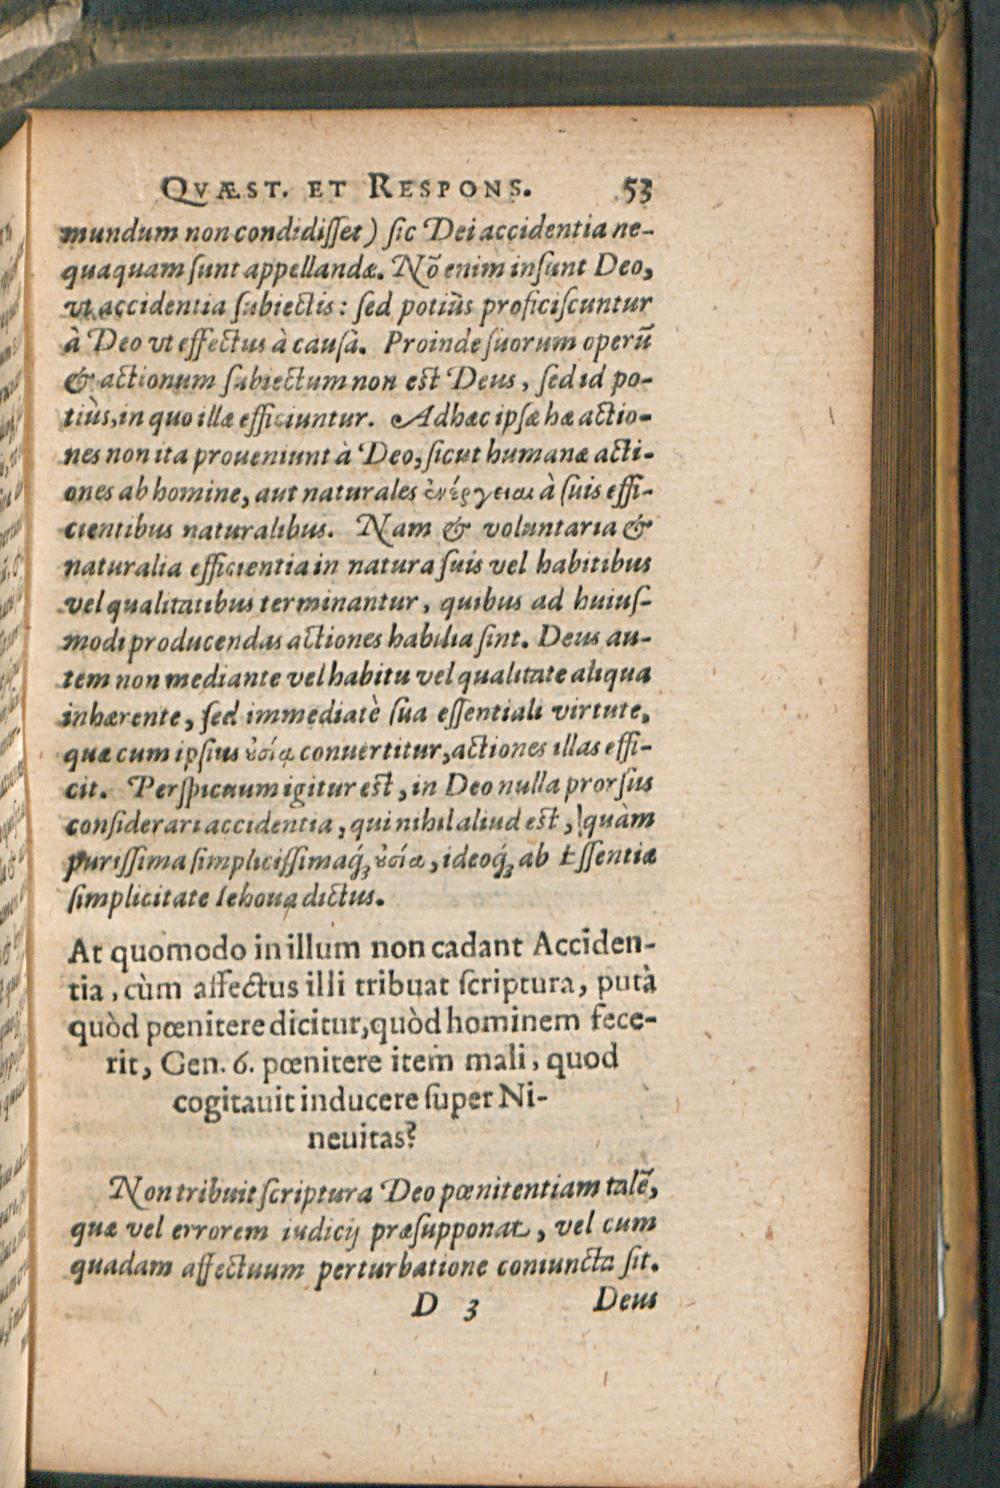 QVÆST. ET RESPONS. 53
mundum non condidiſſet) ſic Dei accidentia ne-
quaquam ſunt appellandæ. Nõ enim inſunt Deo,
vt accidentia ſubiectis: ſed potiùs proficiſcuntur
à Deo vt effectus à cauſâ. Proinde ſuorum operũ
& actionum ſubiectum non eſt Deus, ſed id po-
tiùs, in quo illæ efficiuntur. Adhæc ipſæ hæ actio-
nes non ita proueniunt à Deo, ſicut humanæ acti-
ones ab homine, aut naturales ἐνέργειαι à ſuis effi-
cientibus naturalibus. Nam & voluntaria &
naturalia efficientia in natura ſuis vel habitibus
vel qualitatibus terminantur, quibus ad huiuſ-
modi producendas actiones habilia ſint. Deus au-
tem non mediante vel habitu vel qualitate aliqua
inhærente, ſed immediatè ſua eſſentiali virtute,
quæ cum ipſius ȣσίᾳ conuertitur, actiones illas effi-
cit. Perſpicuum igitur eſt, in Deo nulla prorſus
conſiderari accidentia, qui nihil aliud eſt, quàm
puriſſima ſimpliciſſimaq́; ȣσία, ideoq́; ab Eſſentiæ
ſimplicitate Iehoua dictus.
At quomodo in illum non cadant Acciden-
tia, cùm affectus illi tribuat ſcriptura, putà
quòd pœnitere dicitur, quòd hominem fece-
rit, Gen. 6. pœnitere item mali, quod
cogitauit inducere ſuper Ni-
neuitas?
Non tribuit ſcriptura Deo pœnitentiam talẽ,
quæ vel errorem iudicij præſupponat, vel cum
quadam affectuum perturbatione coniuncta ſit.
D 3 Deus